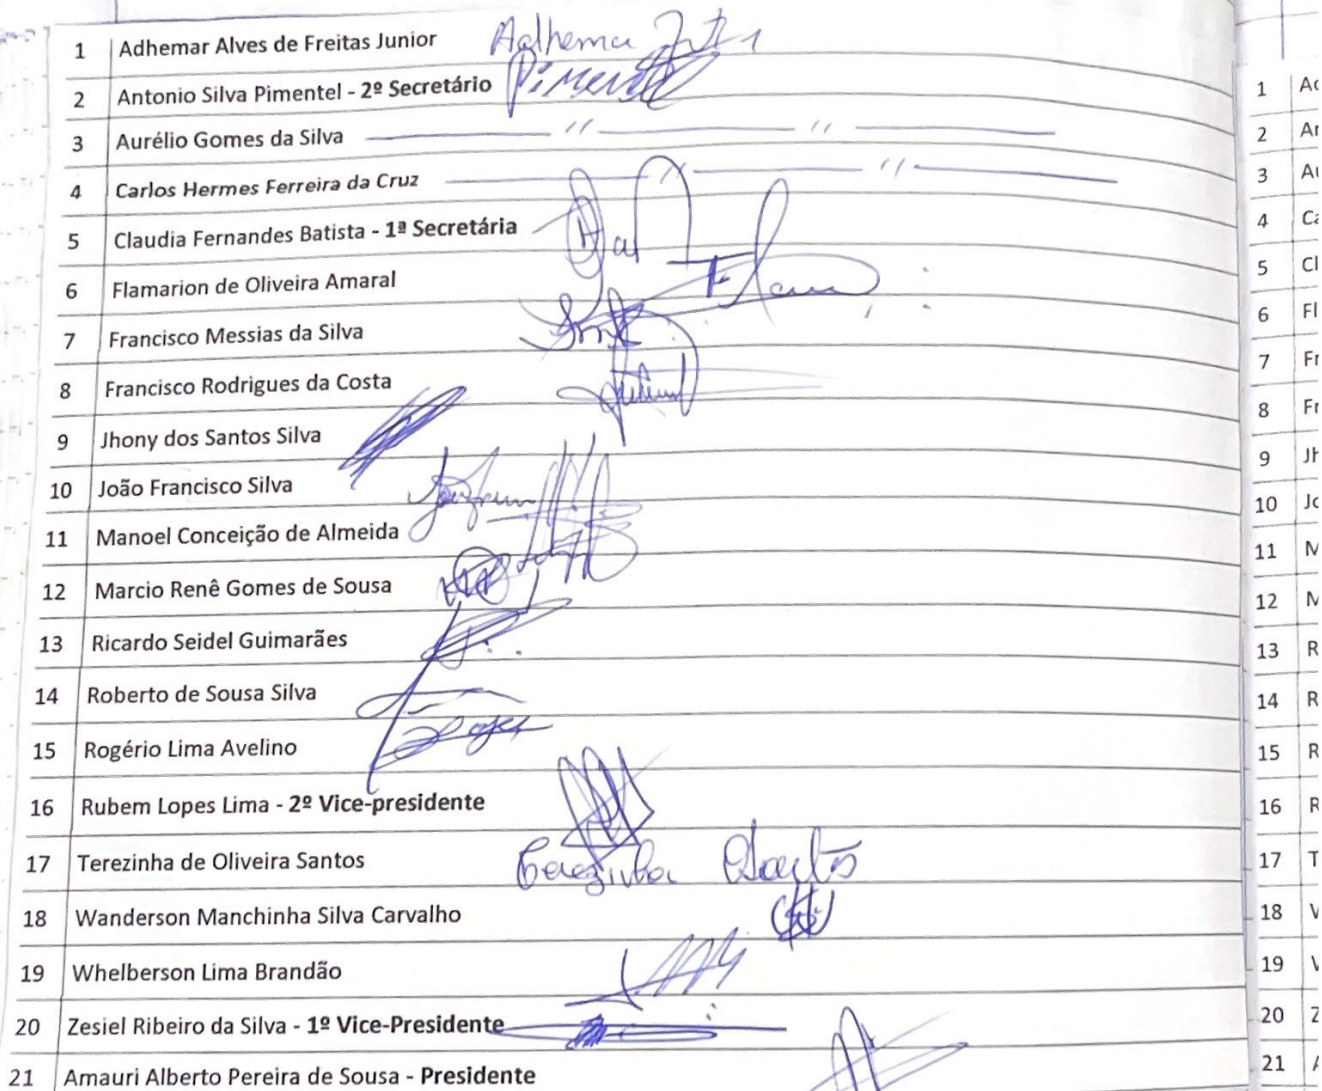 1 Adhemar Alves de Freitas Junior Adhemar
2 Antonio Silva Pimentel - 2º Secretário Pimentel
3 Aurélio Gomes da Silva
4 Carlos Hermes Ferreira da Cruz
5 Claudia Fernandes Batista - 1ª Secretária
6 Flamarion de Oliveira Amaral
7 Francisco Messias da Silva
8 Francisco Rodrigues da Costa
9 Jhony dos Santos Silva
10 João Francisco Silva
11 Manoel Conceição de Almeida
12 Marcio Renê Gomes de Sousa
13 Ricardo Seidel Guimarães
14 Roberto de Sousa Silva
15 Rogério Lima Avelino
16 Rubem Lopes Lima - 2º Vice-presidente
17 Terezinha de Oliveira Santos Terezinha Santos
18 Wanderson Manchinha Silva Carvalho
19 Whelberson Lima Brandão
20 Zesiel Ribeiro da Silva - 1º Vice-Presidente
21 Amauri Alberto Pereira de Sousa - Presidente
1
2
3
4
5
6
7
8
9
10
11
12
13
14
15
16
17
18
19
20
21